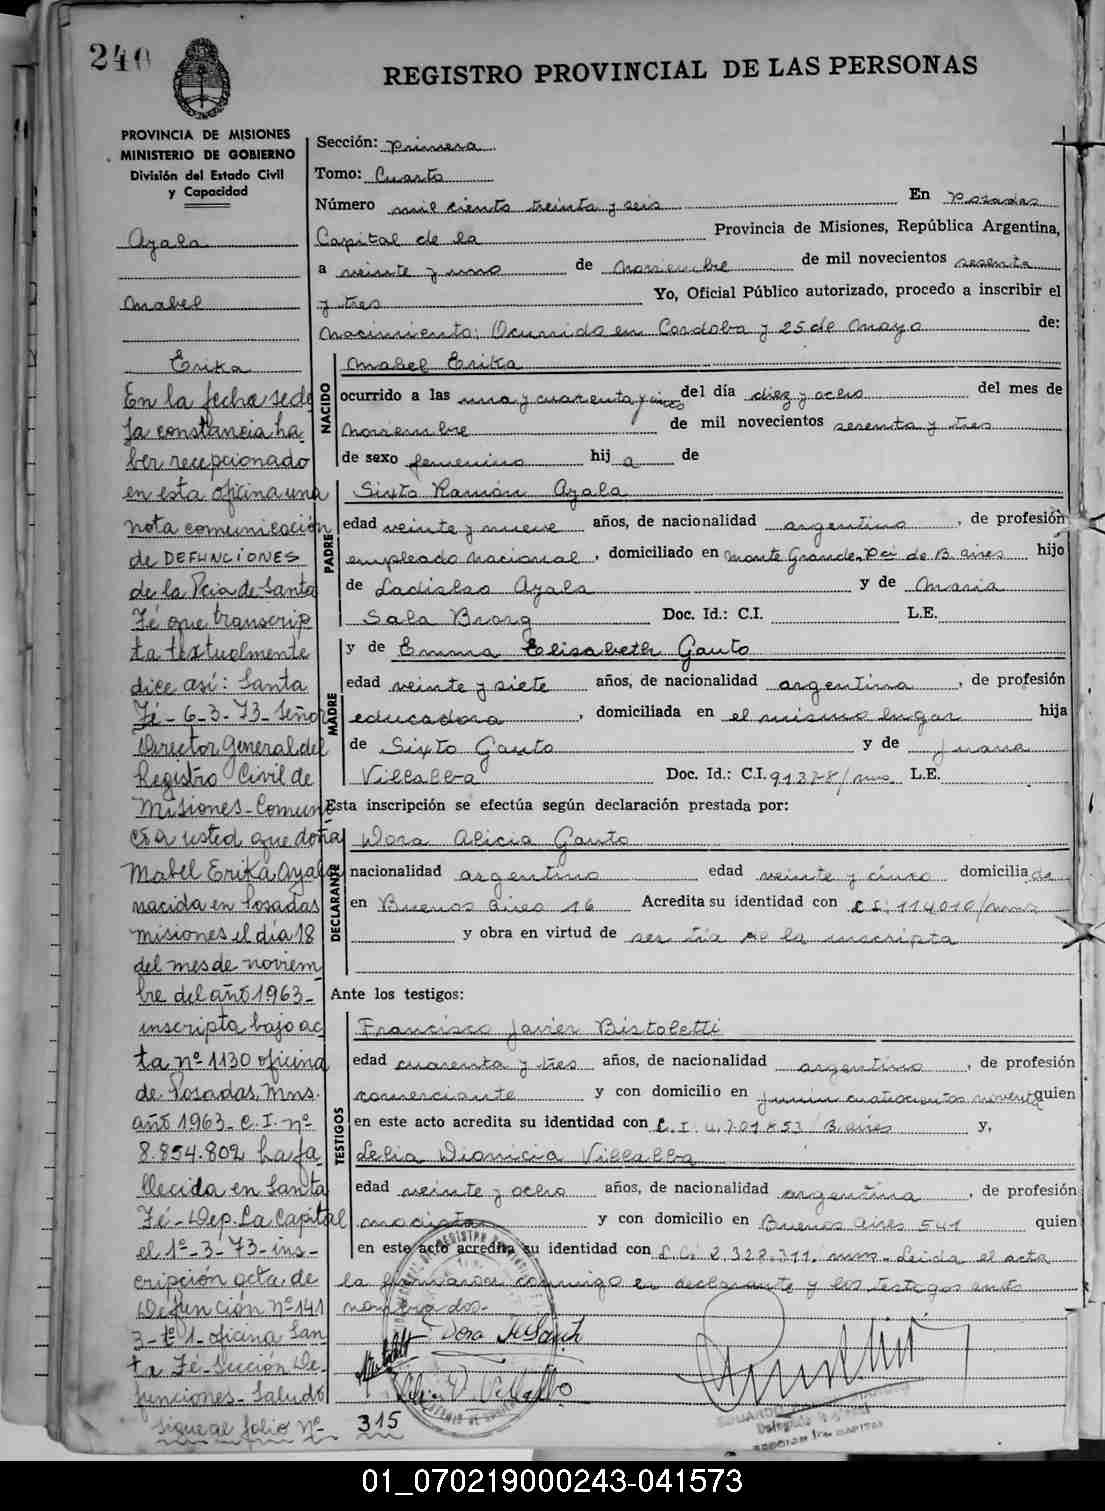 240
REGISTRO PROVINCIAL DE LAS PERSONAS
PROVINCIA DE MISIONES
MINISTERIO DE GOBIERNO
División del Estado Civil
y Capacidad
Ayala
Mabel
Erika
En la fecha se de
ja constancia ha
ber recepcionado
en esta oficina una
nota comunicación
de DEFUNCIONES
de la Pcia de Santa
Fé que transcrip
ta textualmente
dice así: Santa
Fé - 6-3-73 - Señor
Director General del
Registro Civil de
Misiones - Comuni
co a usted que doña
Mabel Erika Ayala
nacida en Posadas
Misiones el día 18
del mes de noviem
bre del año 1963 -
inscripta bajo ac
ta nº 1130 oficina
de Posadas, Mns.
año 1963 - C.I. nº
8.854.802 ha fa
llecida en Santa
Fé - Dep. La Capital
el 1º-3-73 - ins-
cripción acta de
Defunción Nº 141
3 - tº 1 - oficina San
ta Fé - Sección De-
funciones - Saludo
sigue al folio Nº 315
Sección: Primera
Tomo: Cuarto
Número mil ciento treinta y seis En Posadas
Capital de la Provincia de Misiones, República Argentina,
a veinte y uno de noviembre de mil novecientos sesenta
y tres Yo, Oficial Público autorizado, procedo a inscribir el
nacimiento: Ocurrido en Cordoba y 25 de Mayo de:
NACIDO
Mabel Erika
ocurrido a las una y cuarenta y cinco del día diez y ocho del mes de
noviembre de mil novecientos sesenta y tres
de sexo femenino hij a de
PADRE
Sixto Ramón Ayala
edad veinte y nueve años, de nacionalidad argentino, de profesión
empleado nacional, domiciliado en Monte Grande, Pci de B. aires hijo
de Ladislao Ayala y de Maria
Sala Doc. Id.: C.I. L.E.
MADRE
y de Emma Elisabeth Gauto
edad veinte y siete años, de nacionalidad argentina, de profesión
educadora, domiciliada en el mismo lugar hija
de Sixto Gauto y de Juana
Villalba Doc. Id.: C.I. 91378/mns L.E.
Esta inscripción se efectúa según declaración prestada por:
DECLARANTE
Dora Alicia Gauto
nacionalidad argentino edad veinte y cinco domicilia da
en Buenos Aires 16 Acredita su identidad con C.I: 114010/mns
y obra en virtud de ser tía de la inscripta
Ante los testigos:
TESTIGOS
Francisco Javier Bistoletti
edad cuarenta y tres años, de nacionalidad argentino, de profesión
comerciante y con domicilio en Junin cuatrocientos noventa quien
en este acto acredita su identidad con C.I. B. aires y,
Lelia Dionicia Villalba
edad veinte y ocho años, de nacionalidad argentina, de profesión
modista y con domicilio en Buenos Aires 541 quien
en este acto acredita su identidad con L.C. 2.322.311. mns - Leida el acta
la firmaron conmigo el declarante y los testigos antes
nombrados.-
01_070219000243-041573